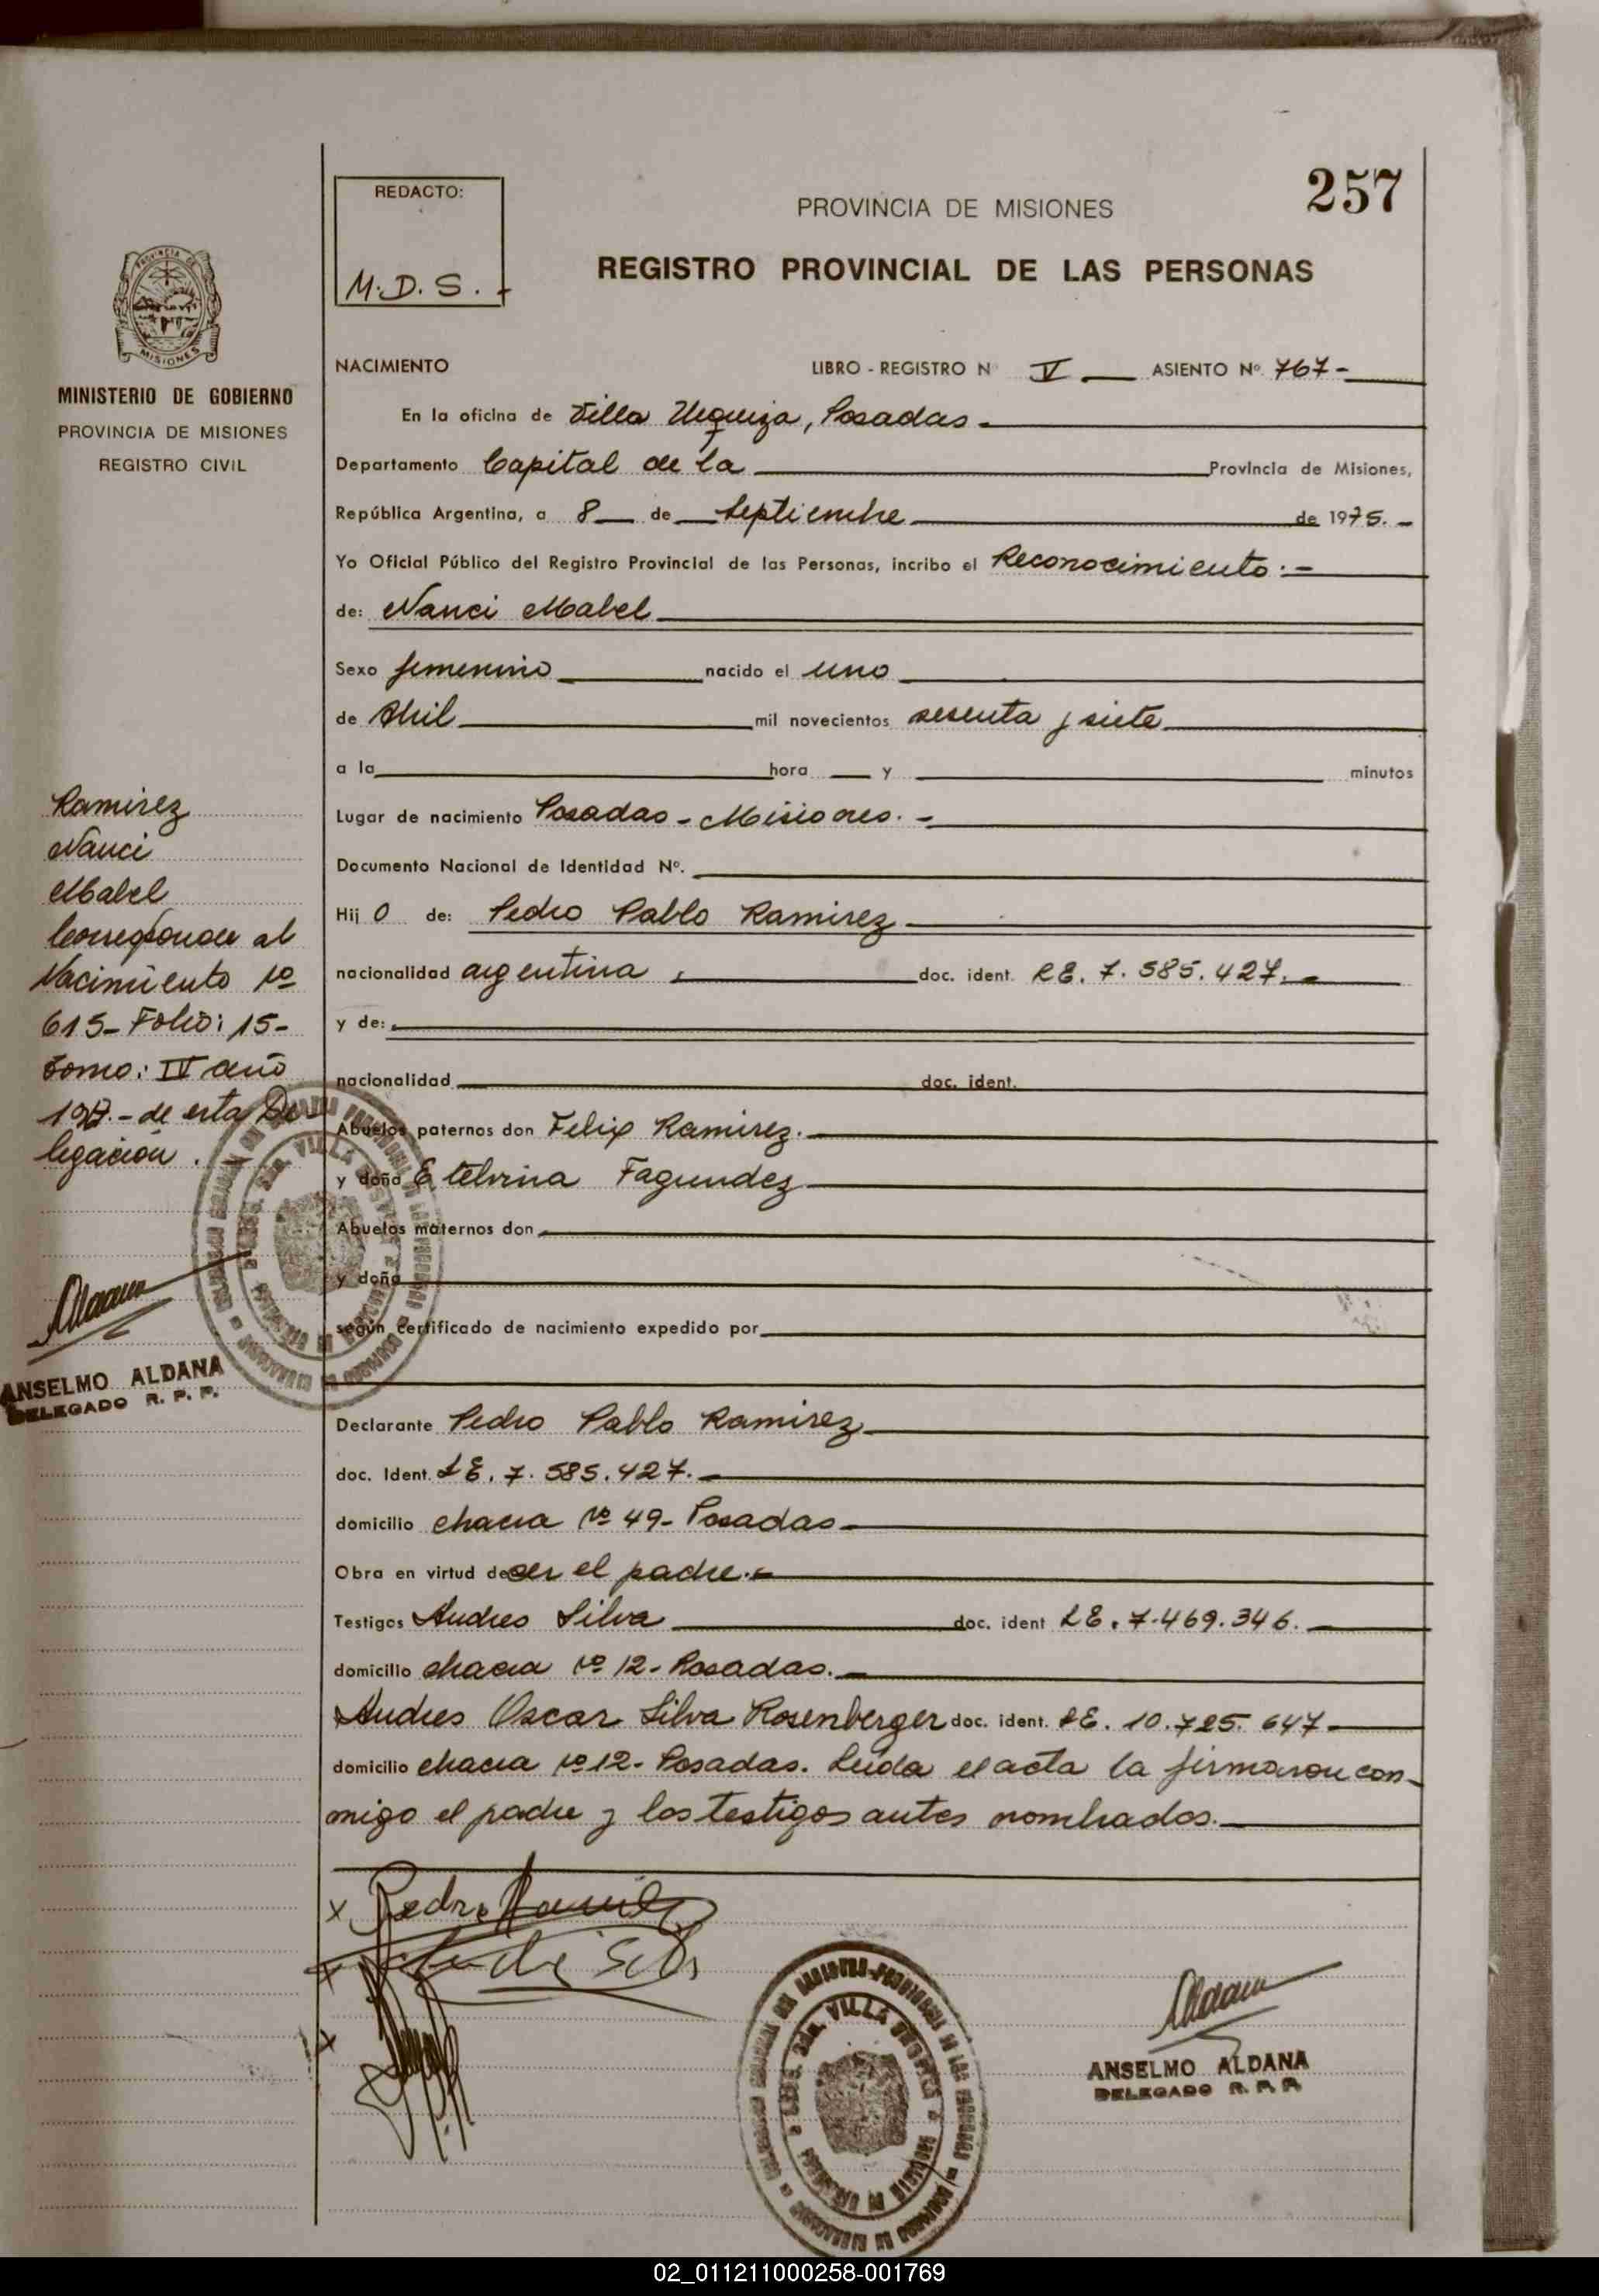 257
REDACTO:
M.D.S.
PROVINCIA DE MISIONES
REGISTRO PROVINCIAL DE LAS PERSONAS
MISIONES
MINISTERIO DE GOBIERNO
PROVINCIA DE MISIONES
REGISTRO CIVIL
NACIMIENTO LIBRO - REGISTRO Nº V ASIENTO Nº. 767-
En la oficina de Villa Urquiza, Posadas.
Departamento Capital de la Provincia de Misiones,
República Argentina, a 8 de Septiembre de 1975.-
Yo Oficial Público del Registro Provincial de las Personas, incribo el Reconocimiento.-
de: Nanci Mabel
Sexo femenino nacido el uno
de Abril mil novecientos sesenta y siete
a la hora y minutos
Lugar de nacimiento Posadas - Misiones. -
Documento Nacional de Identidad Nº.
Hij o de: Pedro Pablo Ramirez
nacionalidad argentina, doc. ident. LE. 7.585.427.-
y de:
nacionalidad doc. ident.
Abuelos paternos don Felix Ramirez.
y doña Etelvina Fagundez
Abuelos maternos don
y doña
según certificado de nacimiento expedido por
Declarante Pedro Pablo Ramirez
doc. Ident. LE. 7.585.427.-
domicilio chacra Nº 49- Posadas
Obra en virtud de ser el padre.-
Testigos Andres Silva doc. ident LE. 7.469.346.
domicilio chacra Nº 12- Posadas.
Andres Oscar Silva Rosenberger doc. ident. LE. 10.725.647-
domicilio chacra Nº 12- Posadas. Leida el acta la firmaron con-
migo el padre y los testigos antes nombrados.
Ramirez
Nanci
Mabel
Corresponde al
Nacimiento Nº
615- Folio: 15-
Tomo: IV año
de esta De
legación.
ANSELMO ALDANA
DELEGADO R. P. P.
x Pedro Ramirez
x
x
VILLA URQUIZA
ANSELMO ALDANA
DELEGADO R. P. P.
02_011211000258-001769